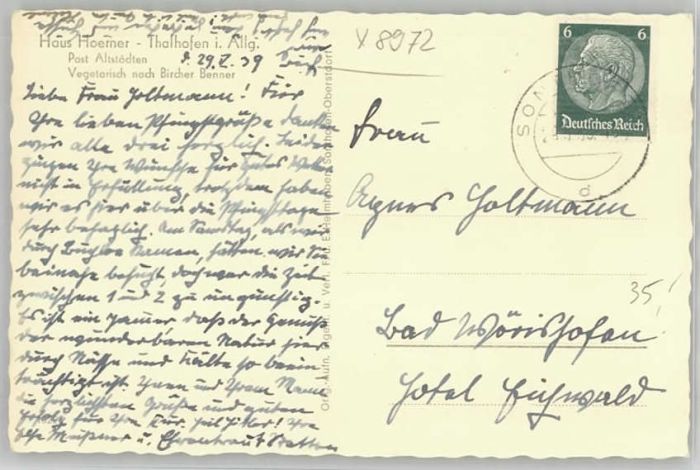 Haus Hoerner - Thalhofen i. Allg.
Post Altstädten
Vegetarisch nach Bircher Benner
d. 29.V.39
Liebe Frau Holtmann! Für
Ihre lieben Pfingstgrüße danken
wir alle drei herzlich. Leider
gingen Ihre Wünsche für gutes Wetter
nicht in Erfüllung, trotzdem haben
wir es hier über die Pfingsttage
sehr behaglich. Am Samstag, als wir
durch Buchloe kamen, hätten wir Sie
beinahe besucht, doch war die Zeit
zwischen 1 und 2 zu ungünstig.
Es ist ein Jammer, daß der Genuß
der wunderbaren Natur hier
durch Nässe und Kälte so beein
trächtigt ist. Ihnen und Ihrem Mann
die herzlichsten Grüße und guten
Erfolg für Ihre Kur. Heil Hitler! Ihre
Meißner u. Ehrentraut
X 8972
6 6
Deutsches Reich
SON
d
Frau
Agnes Holtmann
35,!
Bad Wörishofen
Hotel Eichwald